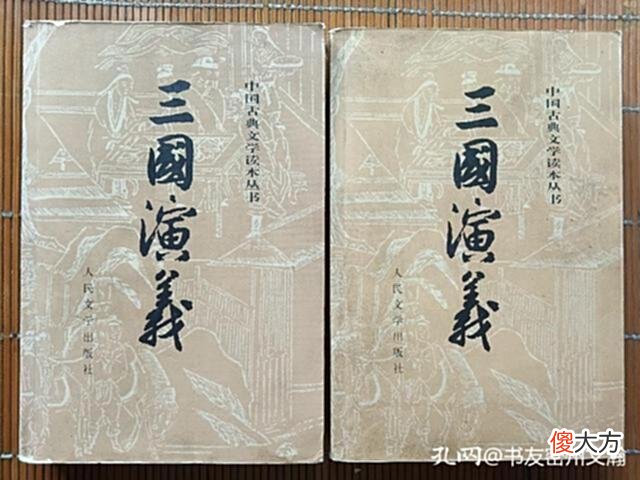 三國演義
中国古典文学读本丛书
人民文学出版社
三國演義
中国古典文学读本丛书
人民文学出版社
傻大方
孔网@书友